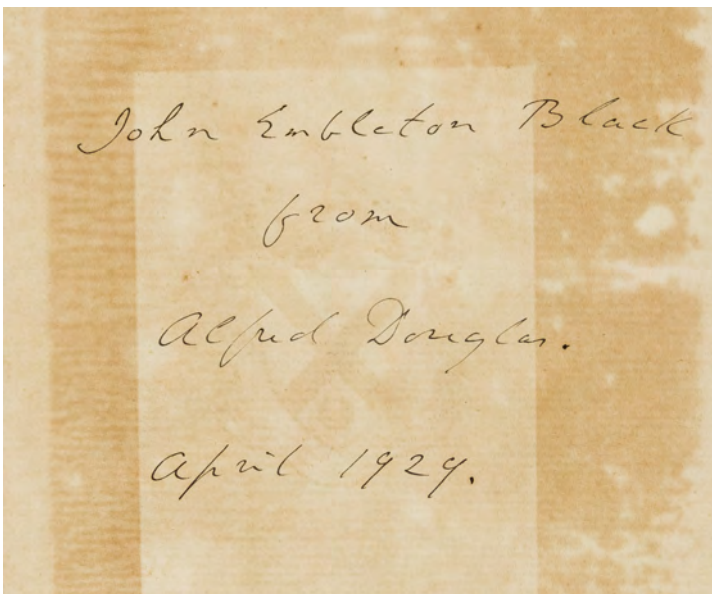 John Embleton Black
from
Alfred Douglas.
April 1929.